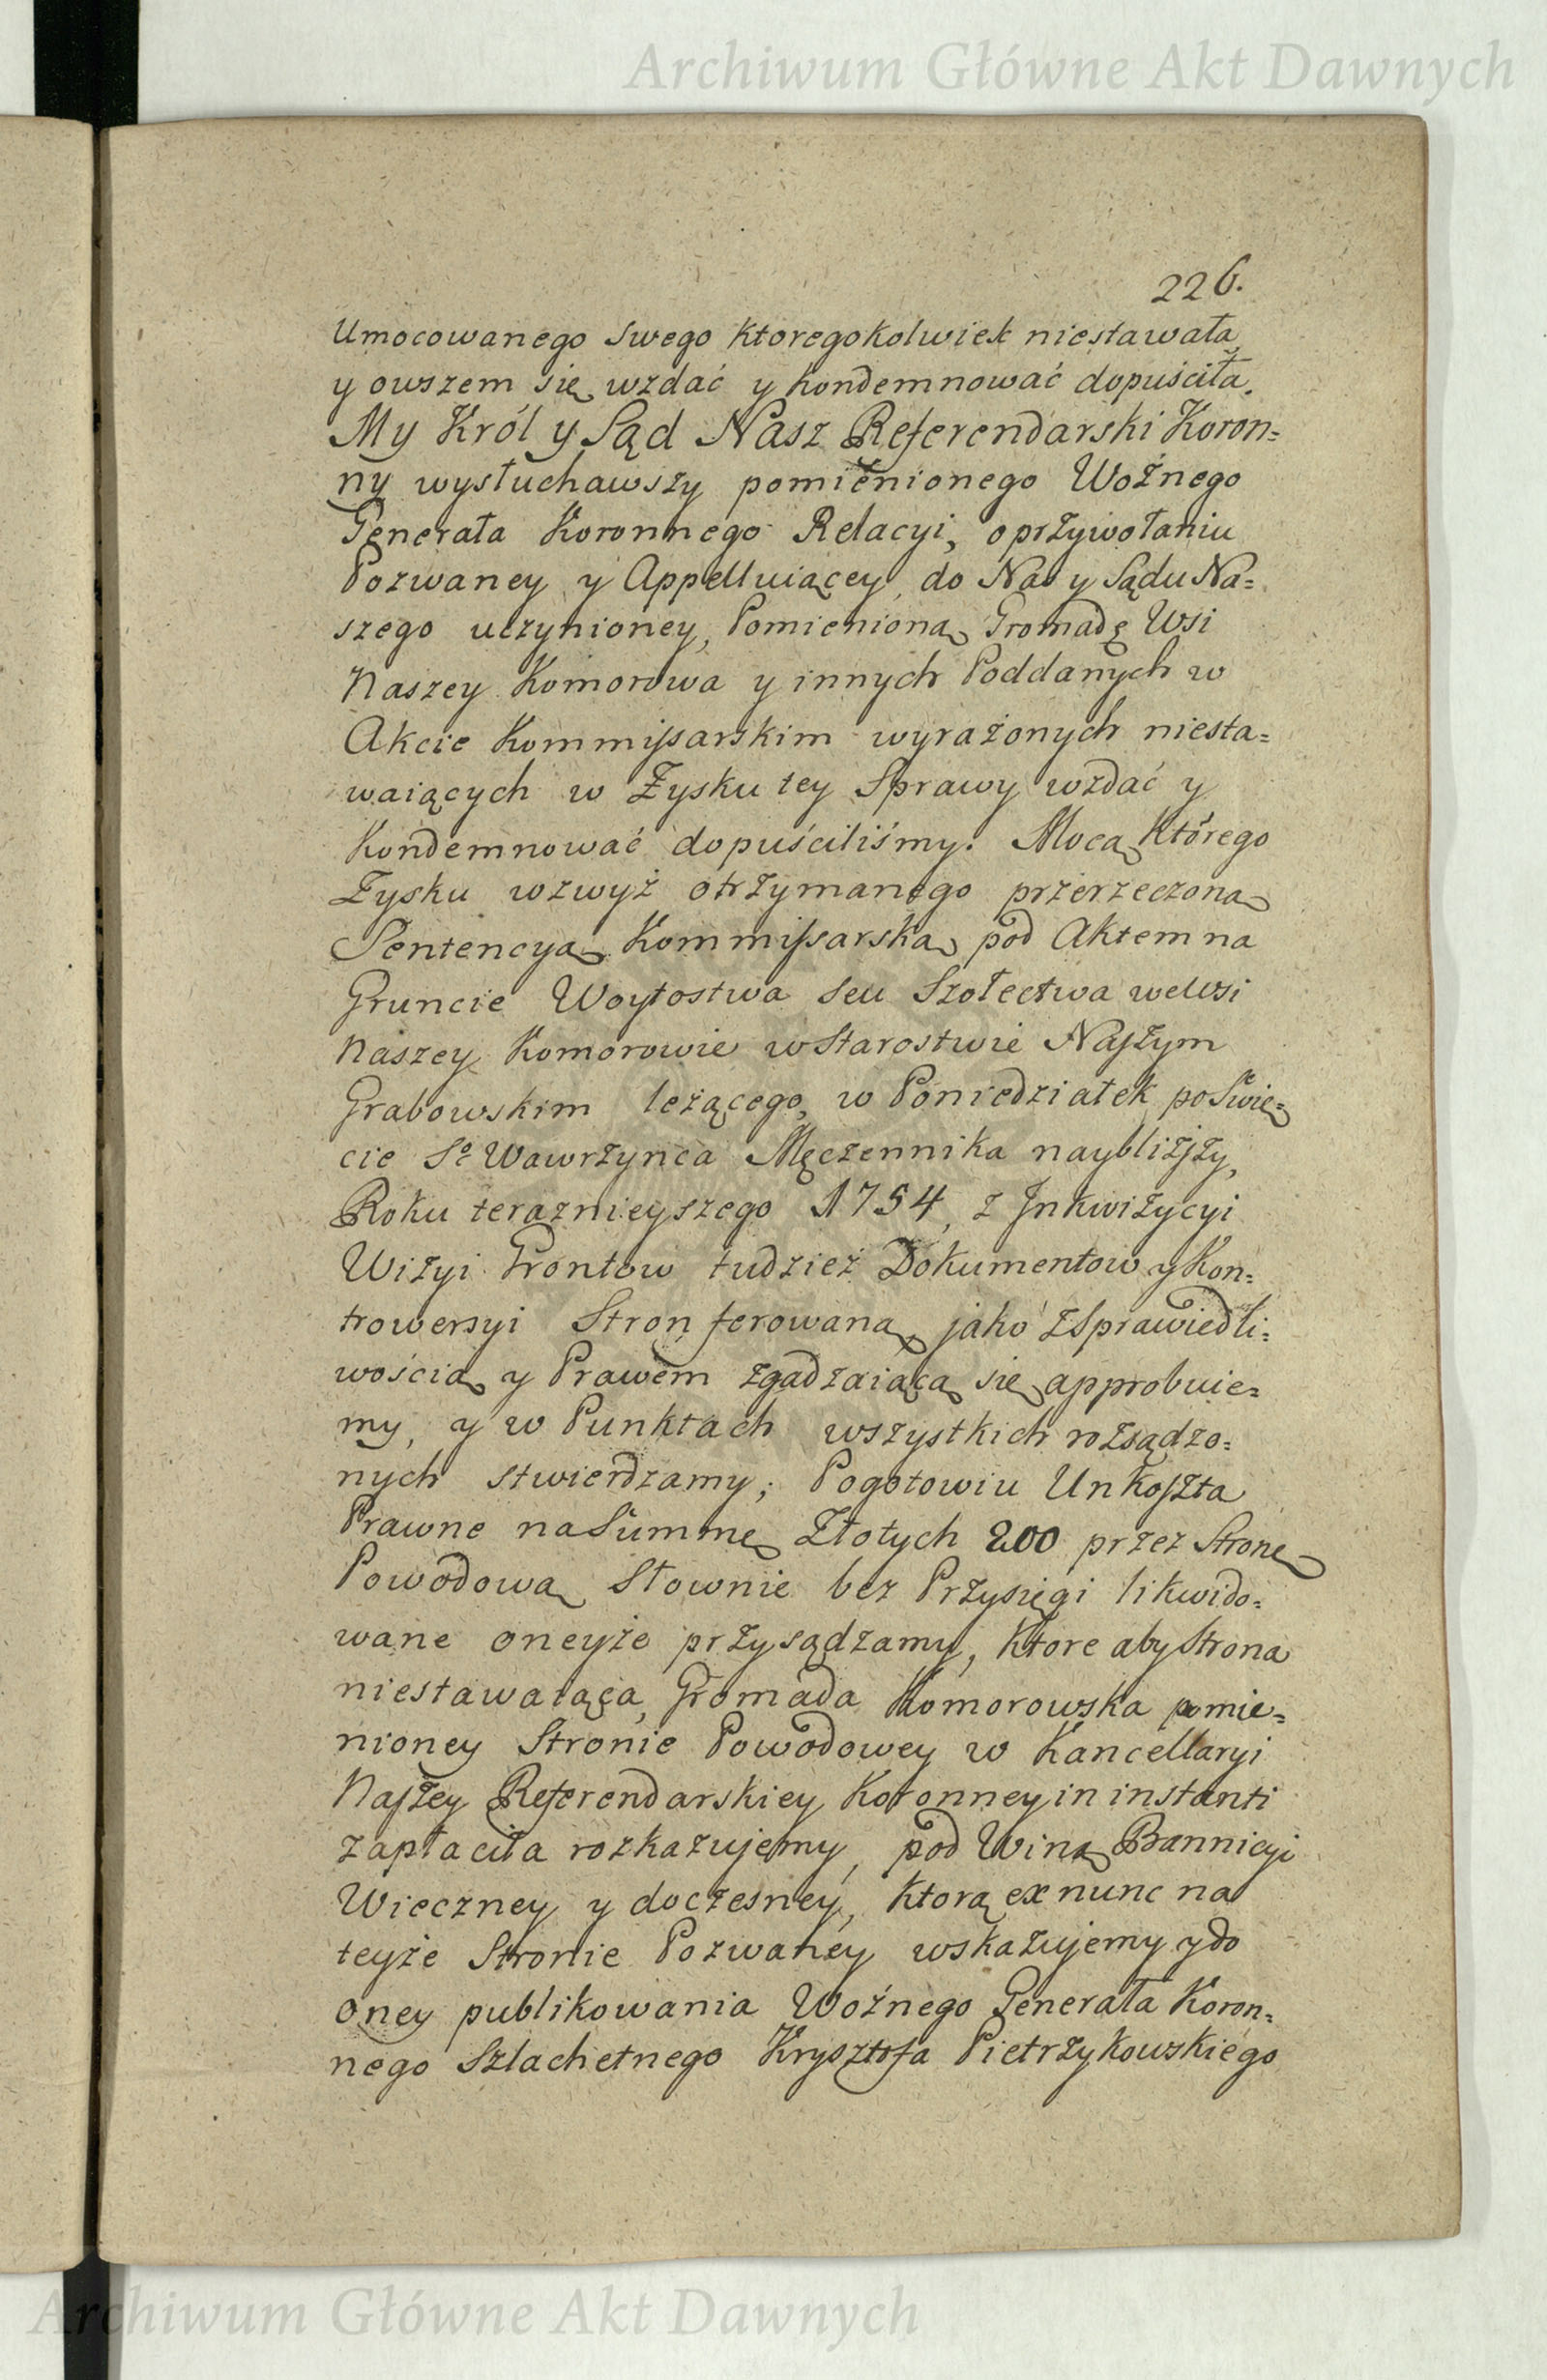 Archiwum Główne Akt Dawnych
226.
Umocowanego swego ktoregokolwiek niestawała,
y owszem się wzdać y kondemnować dopuściła.
My Król y Sąd Nasz Referendarski Koron=
ny wysłuchawszy pomienionego Woźnego
Generała Koronnego Relacyi, o przywołaniu
Pozwaney y Appelluiącey do Nas y Sądu Na=
szego uczynioney, Pomienioną Gromadę Wsi
Naszey Komorowa y innych Poddanych w
Akcie Kommissarskim wyrażonych niesta=
waiących w Zysku tey Sprawy wzdać y
kondemnować dopuściliśmy. Mocą którego
Zysku wzwyż otrzymanego przerzeczoną
Sentencyą Kommissarską pod Aktem na
Gruncie Woytostwa seu Szołectwa we Wsi
Naszey Komorowie w Starostwie Naszym
Grabowskim leżącego, w Poniedziałek po Świę=
cie Sº Wawrzynca Męczennika naybliższy,
Roku teraznieyszego 1754, z Inkwizycyi
Wizyi Grontow tudzież Dokumentow y Kon=
trowersyi Stron ferowaną, jako z sprawiedli=
wością y Prawem zgadzaiącą się approbuie=
my, y w Punktach wszystkich rozsądzo=
nych stwierdzamy; Pogotowiu Unkoszta
Prawne na Summę Złotych 200 przez Stronę
Powodową Słownie bez Przysięgi likwido=
wane oneyże przysądzamy, ktore aby Strona
niestawaiąca, Gromada Komorowska pomie=
nioney Stronie Powodowey w Kancellaryi
Naszey Referendarskiey Koronney in instanti
zapłaciła rozkazujemy, pod Winą Bannicyi
Wieczney y doczesney, ktorą ex nunc na
teyże Stronie Pozwaney wskazujemy y do
oney publikowania Woźnego Generała Koron=
nego Szlachetnego Krysztofa Pietrzykowskiego
Archiwum Główne Akt Dawnych